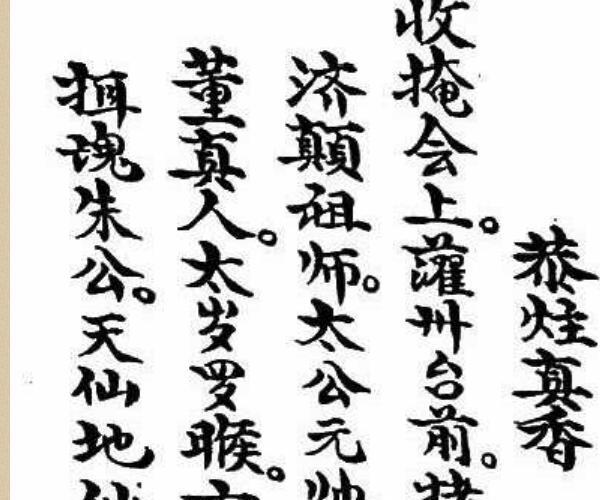 恭炷真香
收掩会上。灌州台前。
济颠祖师。太公元帅
董真人。太岁罗睺。
挕魂朱公。天仙地